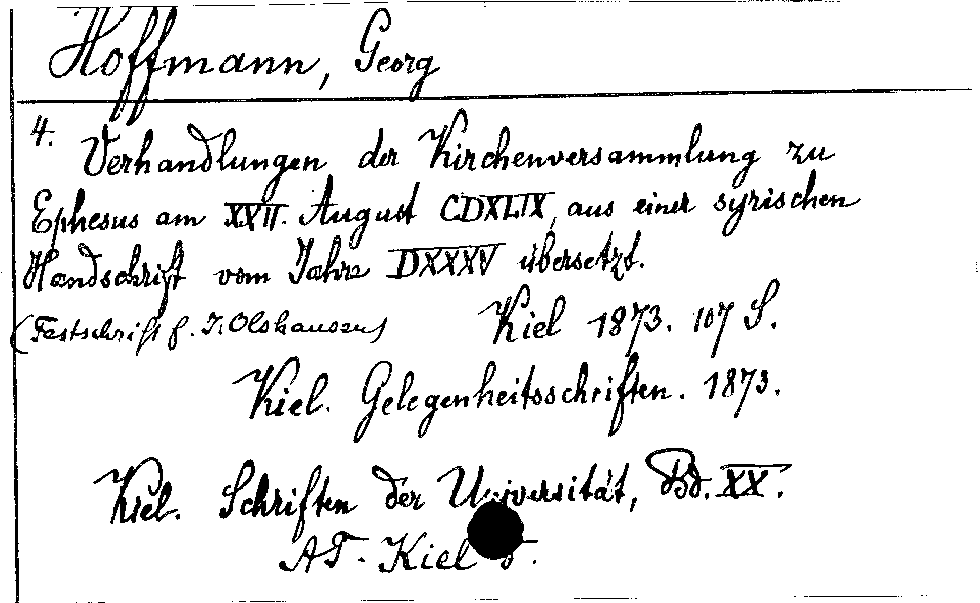 Hoffmann, Georg
4. Verhandlungen der Kirchenversammlung zu
Ephesus am XXII. August CDXLIX, aus einer syrischen
Handschrift vom Jahre DXXXV übersetzt.
(Festschrift f. J. Olshausen) Kiel 1873. 107 S.
Kiel. Gelegenheitsschriften. 1873.
Kiel. Schriften der Universität, Bd. XX.
AT. Kiel